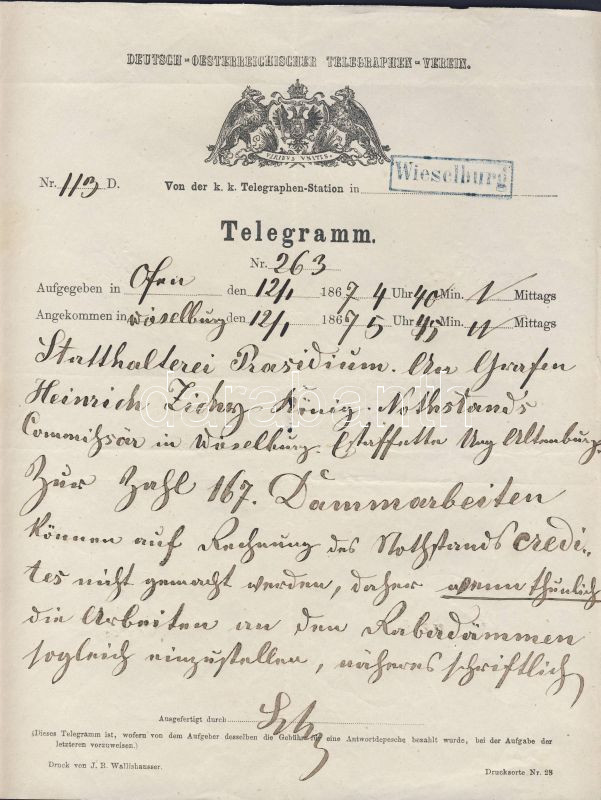 DEUTSCH-OESTERREICHISCHER TELEGRAPHEN-VEREIN.
VIRIBUS UNITIS
Nr. 113 D. Von der k. k. Telegraphen-Station in Wieselburg
Telegramm.
Nr. 263
Aufgegeben in Ofen den 12/1 1867 4 Uhr 40 Min. Mittags
Angekommen in Wieselburg den 12/1 1867 5 Uhr 45 Min. Mittags
Statthalterei Praesidium. An Grafen
Heinrich Zichy König. Nothstands
Commissär in Wieselburg. Estaffette Ung Altenburg
Zur Zahl 167. Dammarbeiten
können auf Rechnung des Nothstandscredi-
tes nicht gemacht werden, daher wenn thunlich
die Arbeiten an den Rabadämmen
sogleich einzustellen, näheres schriftlich
darabanth
Ausgefertigt durch
(Dieses Telegramm ist, wofern von dem Aufgeber desselben die Gebühr für eine Antwortdepesche bezahlt wurde, bei der Aufgabe der
letzteren vorzuweisen.)
Druck von J. B. Wallishausser. Drucksorte Nr. 28